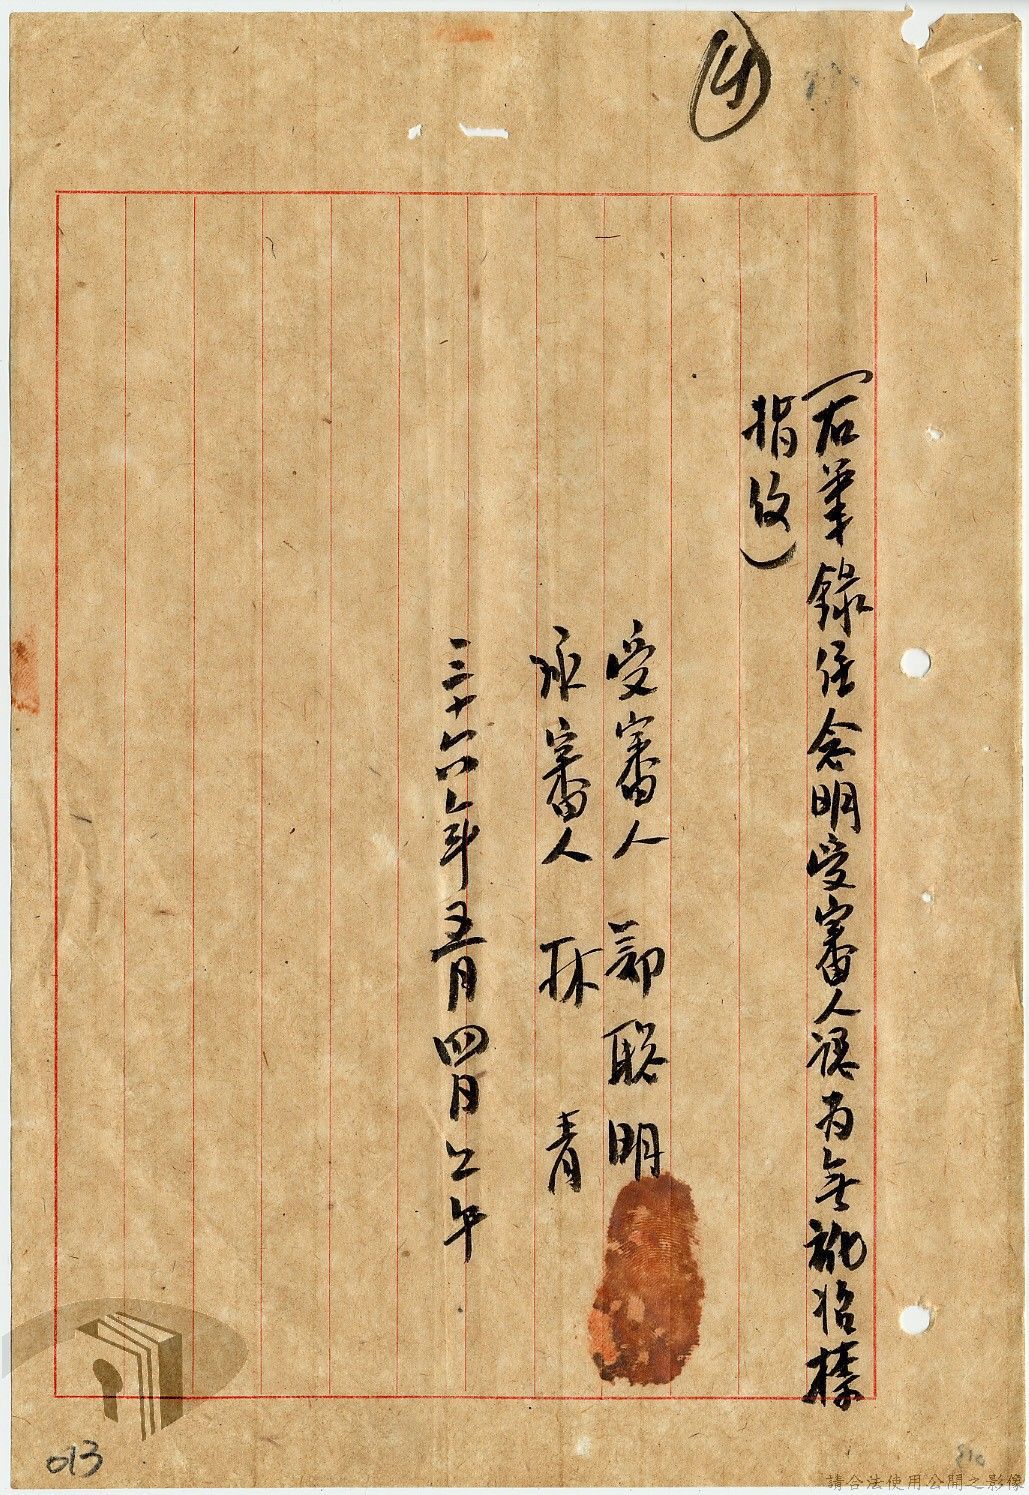 (右筆錄經念明受審人認為無訛始捺
指紋)
受審人 鄭聰明
承審人 林 青
三十六年五月四日上午
013
請合法使用公開之影像